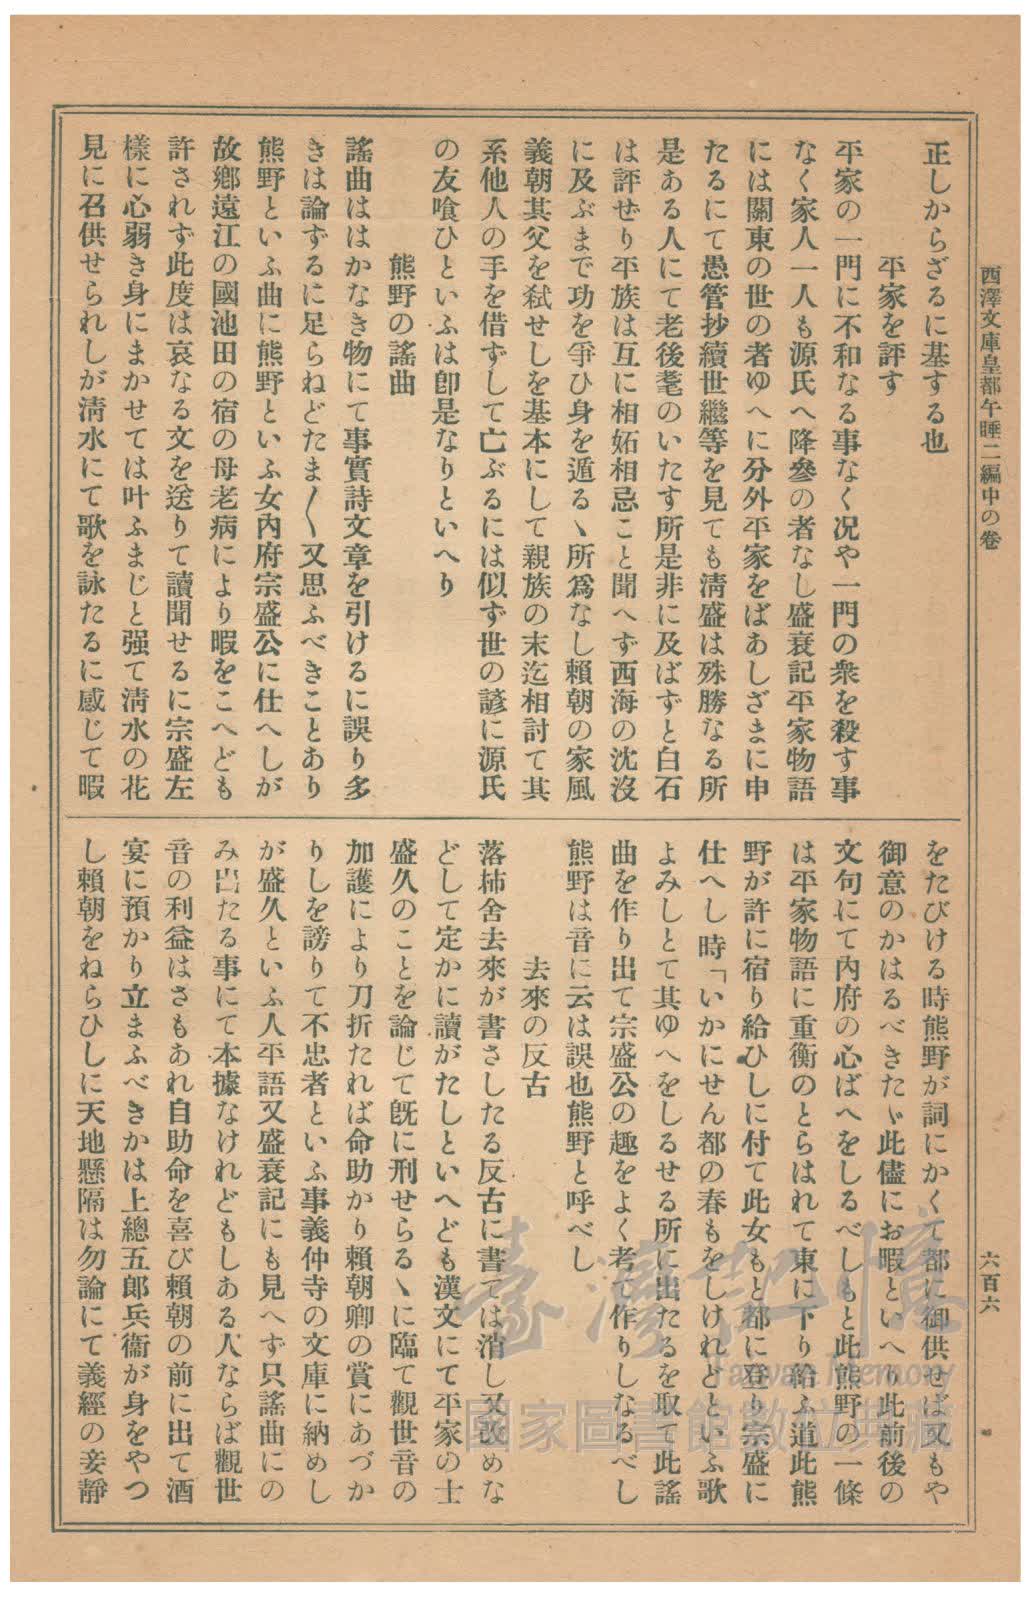 西澤文庫皇都午睡二編中の卷
六百六
正しからざるに基する也
平家を評す
平家の一門に不和なる事なく况や一門の衆を殺す事
なく家人一人も源氏へ降參の者なし盛衰記平家物語
には關東の世の者ゆへに分外平家をばあしざまに申
たるにて愚管抄續世繼等を見ても淸盛は殊勝なる所
是ある人にて老後耄のいたす所是非に及ばずと白石
は評せり平族は互に相妬相忌こと聞へず西海の沈沒
に及ぶまで功を爭ひ身を遁るヽ所爲なし賴朝の家風
義朝其父を弑せしを基本にして親族の末迄相討て其
系他人の手を借ずして亡ぶるには似ず世の諺に源氏
の友喰ひといふは卽是なりといへり
熊野の謠曲
謠曲ははかなき物にて事實詩文章を引けるに誤り多
きは論ずるに足らねどたま〱又思ふべきことあり
熊野といふ曲に熊野といふ女內府宗盛公に仕へしが
故鄕遠江の國池田の宿の母老病により暇をこへども
許されず此度は哀なる文を送りて讀聞せるに宗盛左
樣に心弱き身にまかせては叶ふまじと强て淸水の花
見に召供せられしが淸水にて歌を詠たるに感じて暇
をたびける時熊野が詞にかくて都に御供せば又もや
御意のかはるべきたヾ此儘にお暇といへり此前後の
文句にて內府の心ばへをしるべしもと此熊野の一條
は平家物語に重衡のとらはれて東に下り給ふ道此熊
野が許に宿り給ひしに付て此女もと都に登り宗盛に
仕へし時「いかにせん都の春もをしけれどといふ歌
よみしとて其ゆへをしるせる所に出たるを取て此謠
曲を作り出て宗盛公の趣をよく考て作りしなるべし
熊野は音に云は誤也熊野と呼べし
去來の反古
落柿舍去來が書さしたる反古に書ては消し又改めな
どして定かに讀がたしといへども漢文にて平家の士
盛久のことを論じて旣に刑せらるヽに臨て觀世音の
加護により刀折たれば命助かり賴朝卿の賞にあづか
りしを謗りて不忠者といふ事義仲寺の文庫に納めし
が盛久といふ人平語又盛衰記にも見へず只謠曲にの
み出たる事にて本據なけれどもしある人ならば觀世
音の利益はさもあれ自助命を喜び賴朝の前に出て酒
宴に預かり立まふべきかは上總五郎兵衞が身をやつ
し賴朝をねらひしに天地懸隔は勿論にて義經の妾靜
臺灣記憶
Taiwan Memory
國家圖書館數位典藏